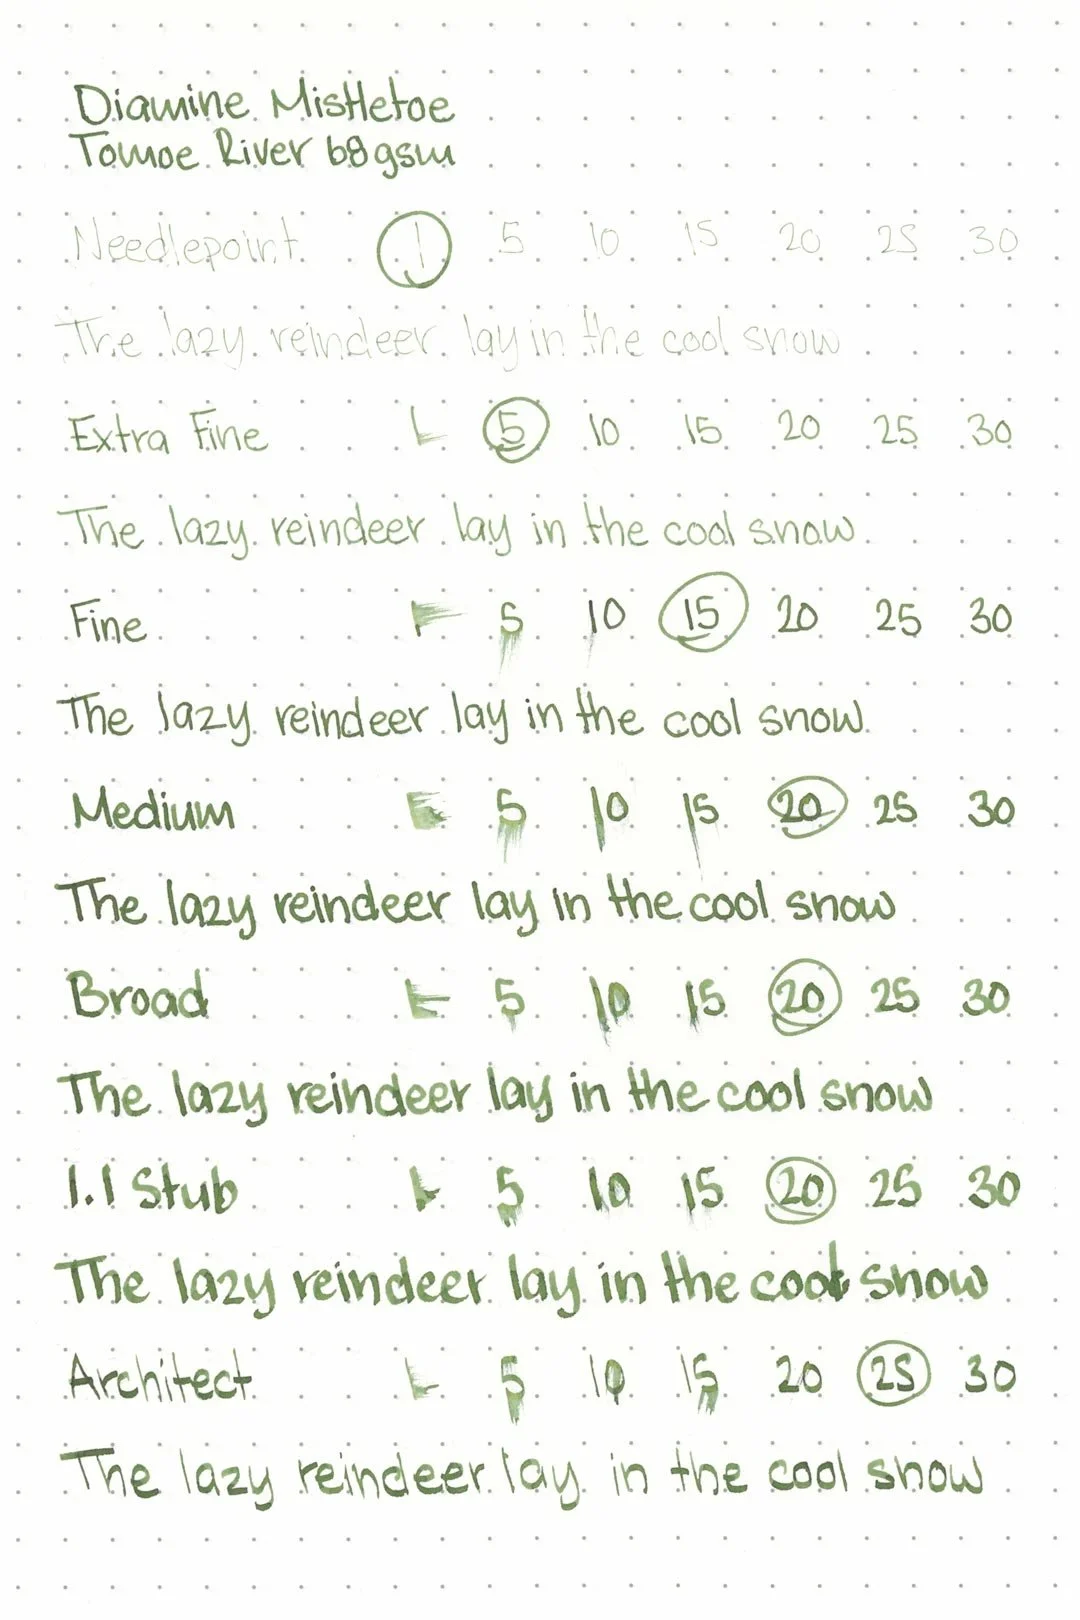 Diamine Mistletoe
Tomoe River 68gsm
Needlepoint 1 5 10 15 20 25 30
The lazy reindeer lay in the cool snow
Extra Fine 1 5 10 15 20 25 30
The lazy reindeer lay in the cool snow.
Fine 1 5 10 15 20 25 30
The lazy reindeer lay in the cool snow.
Medium 1 5 10 15 20 25 30
The lazy reindeer lay in the cool snow
Broad 1 5 10 15 20 25 30
The lazy reindeer lay in the cool snow
1.1 Stub 1 5 10 15 20 25 30
The lazy reindeer lay in the cool snow
Architect 1 5 10 15 20 25 30
The lazy reindeer lay in the cool snow